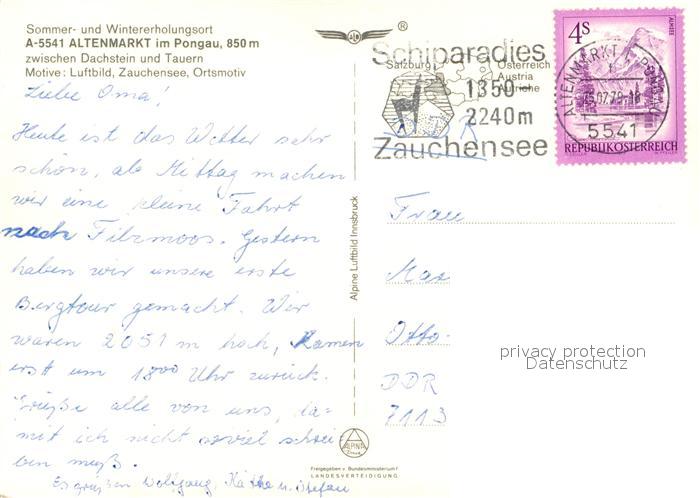 Sommer- und Wintererholungsort
A-5541 ALTENMARKT im Pongau, 850 m
zwischen Dachstein und Tauern
Motive: Luftbild, Zauchensee, Ortsmotiv
Liebe Oma!
Heute ist das Wetter sehr
schön, ab Mittag machen
wir eine kleine Fahrt
nach Filzmoos. Gestern
haben wir unsere erste
Bergtour gemacht. Wir
waren 2051 m hoch, kamen
erst um 1800 Uhr zurück.
Grüße alle von uns, da-
mit ich nicht soviel schrei
ben muß.
Es grüßen Wolfgang, Käthe u. Stefan
Alpine Luftbild Innsbruck
ALPINA
Freigegeben v. Bundesministerium f.
LANDESVERTEIDIGUNG
®
Schiparadies
Salzburg
Österreich
Austria
Autriche
1350-
2240m
DDR
Zauchensee
4S
ALMSEE
REPUBLIK ÖSTERREICH
ALTENMARKT PONGAU
25.07.79-18
5541
Frau
Max
Otto-
DDR
7113
privacy protection
Datenschutz